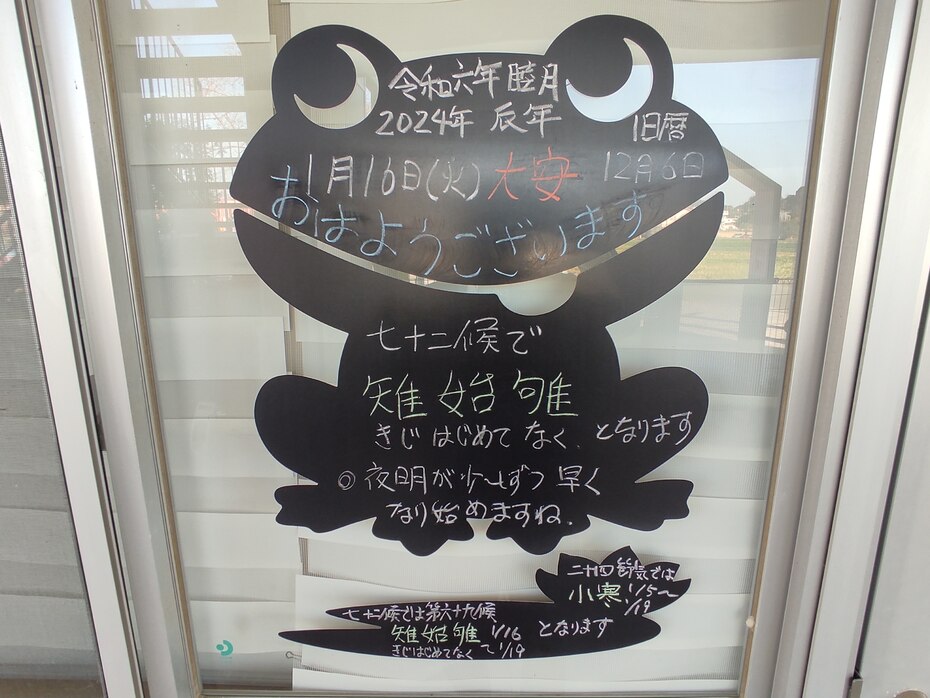 令和六年 睦月
2024年 辰年
旧暦
12月6日
1月16日(火)大安
おはようございます
七十二候で
雉始雊
きじ はじめて なく、となります
◎夜明が少しずつ早く
なり始めますね。
二十四節気では
小寒 1/5〜
1/19
七十二候では第六十九候
雉始雊 1/16 となります
きじはじめてなく 〜1/19